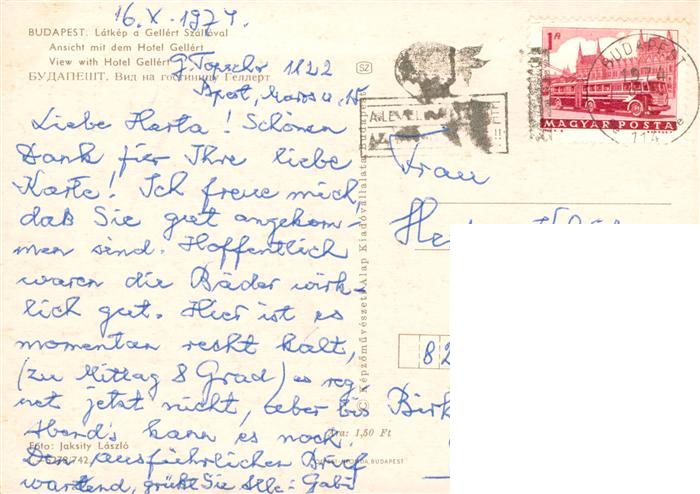 16. X. 1974.
BUDAPEST: Látkép a Gellért Szállóval
Ansicht mit dem Hotel Gellért
View with Hotel Gellért
БУДАПЕШТ. Вид на гостиницу Геллерт
1122
Bpest, Maros u.
Liebe Herta! Schönen
Dank für Ihre liebe
Karte! Ich freue mich,
daß Sie gut angekom-
men sind. Hoffentlich
waren die Bäder wirk-
lich gut. Hier ist es
momentan recht kalt,
(zu Mittag 8 Grad) es reg-
net jetzt nicht, aber bis
Abends kann es noch.
Den ausführlichen Brief
wartend, grüßt Sie alle: Gabi
Foto: Jaksity László
Ára: 1,50 Ft
BUDAPEST
SZ
© Képzőművészeti Alap Kiadóvállalata Budapest
A LEVÉL
!!
1Ft
MAGYAR POSTA
BUDAPEST
1974
114
Frau
82
Birk